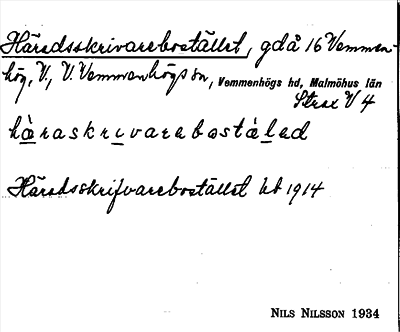 Häradsskrivarebostället, gdå 16 Vemmen-
hög, V., V. Vemmenhögs sn, Vemmenhögs hd, Malmöhus län
Strax V 4
hàraskrivarebostàled
Häradsskrifvarebostället hb 1914
NILS NILSSON 1934